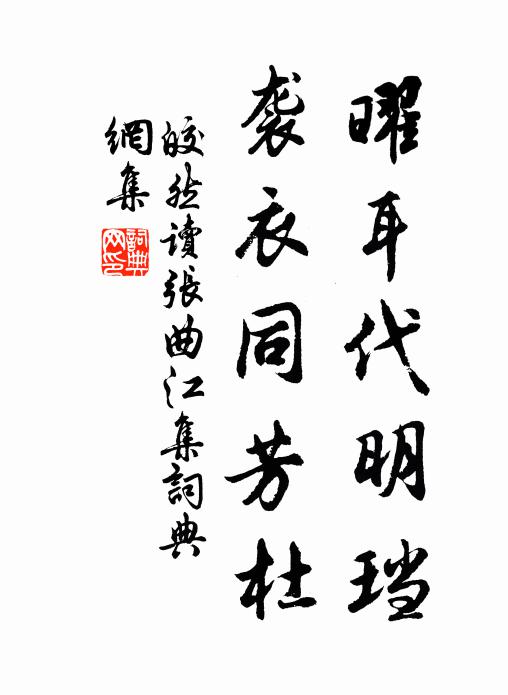 曜耳代明珰
袭衣同芳杜
皎然读張曲江集詞典
網集
詞典
网印